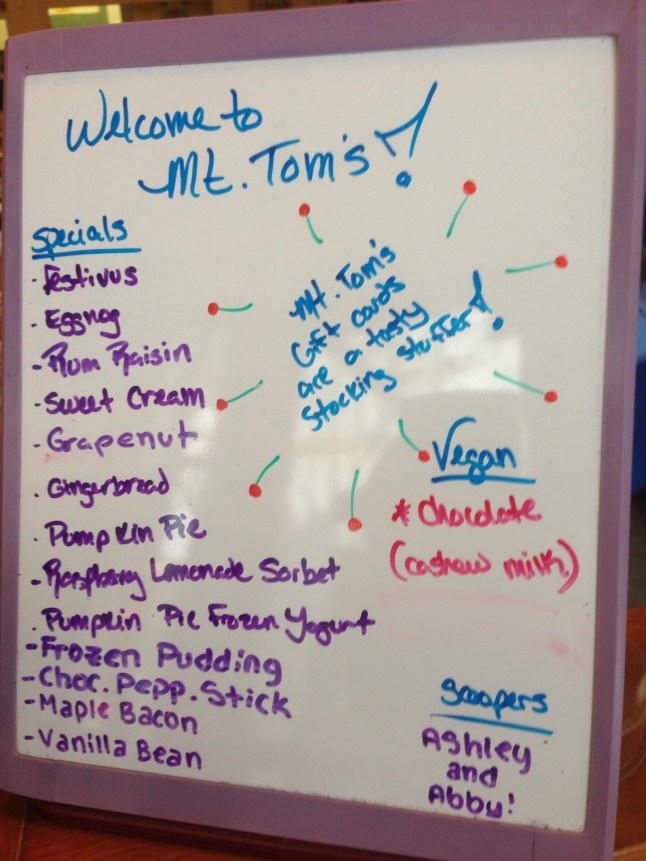 Welcome to
Mt. Tom's!
Specials
- Festivus
- Eggnog
- Rum Raisin
- Sweet Cream
- Grapenut
. Gingerbread
. Pumpkin Pie
- Raspberry Lemonade Sorbet
. Pumpkin Pie Frozen Yogurt
- Frozen Pudding
- Choc. Pepp. Stick
- Maple Bacon
- Vanilla Bean
Mt. Tom's
Gift cards
are a tasty
stocking stuffer!
Vegan
* Chocolate
(cashew milk)
Scoopers
Ashley
and
Abby!